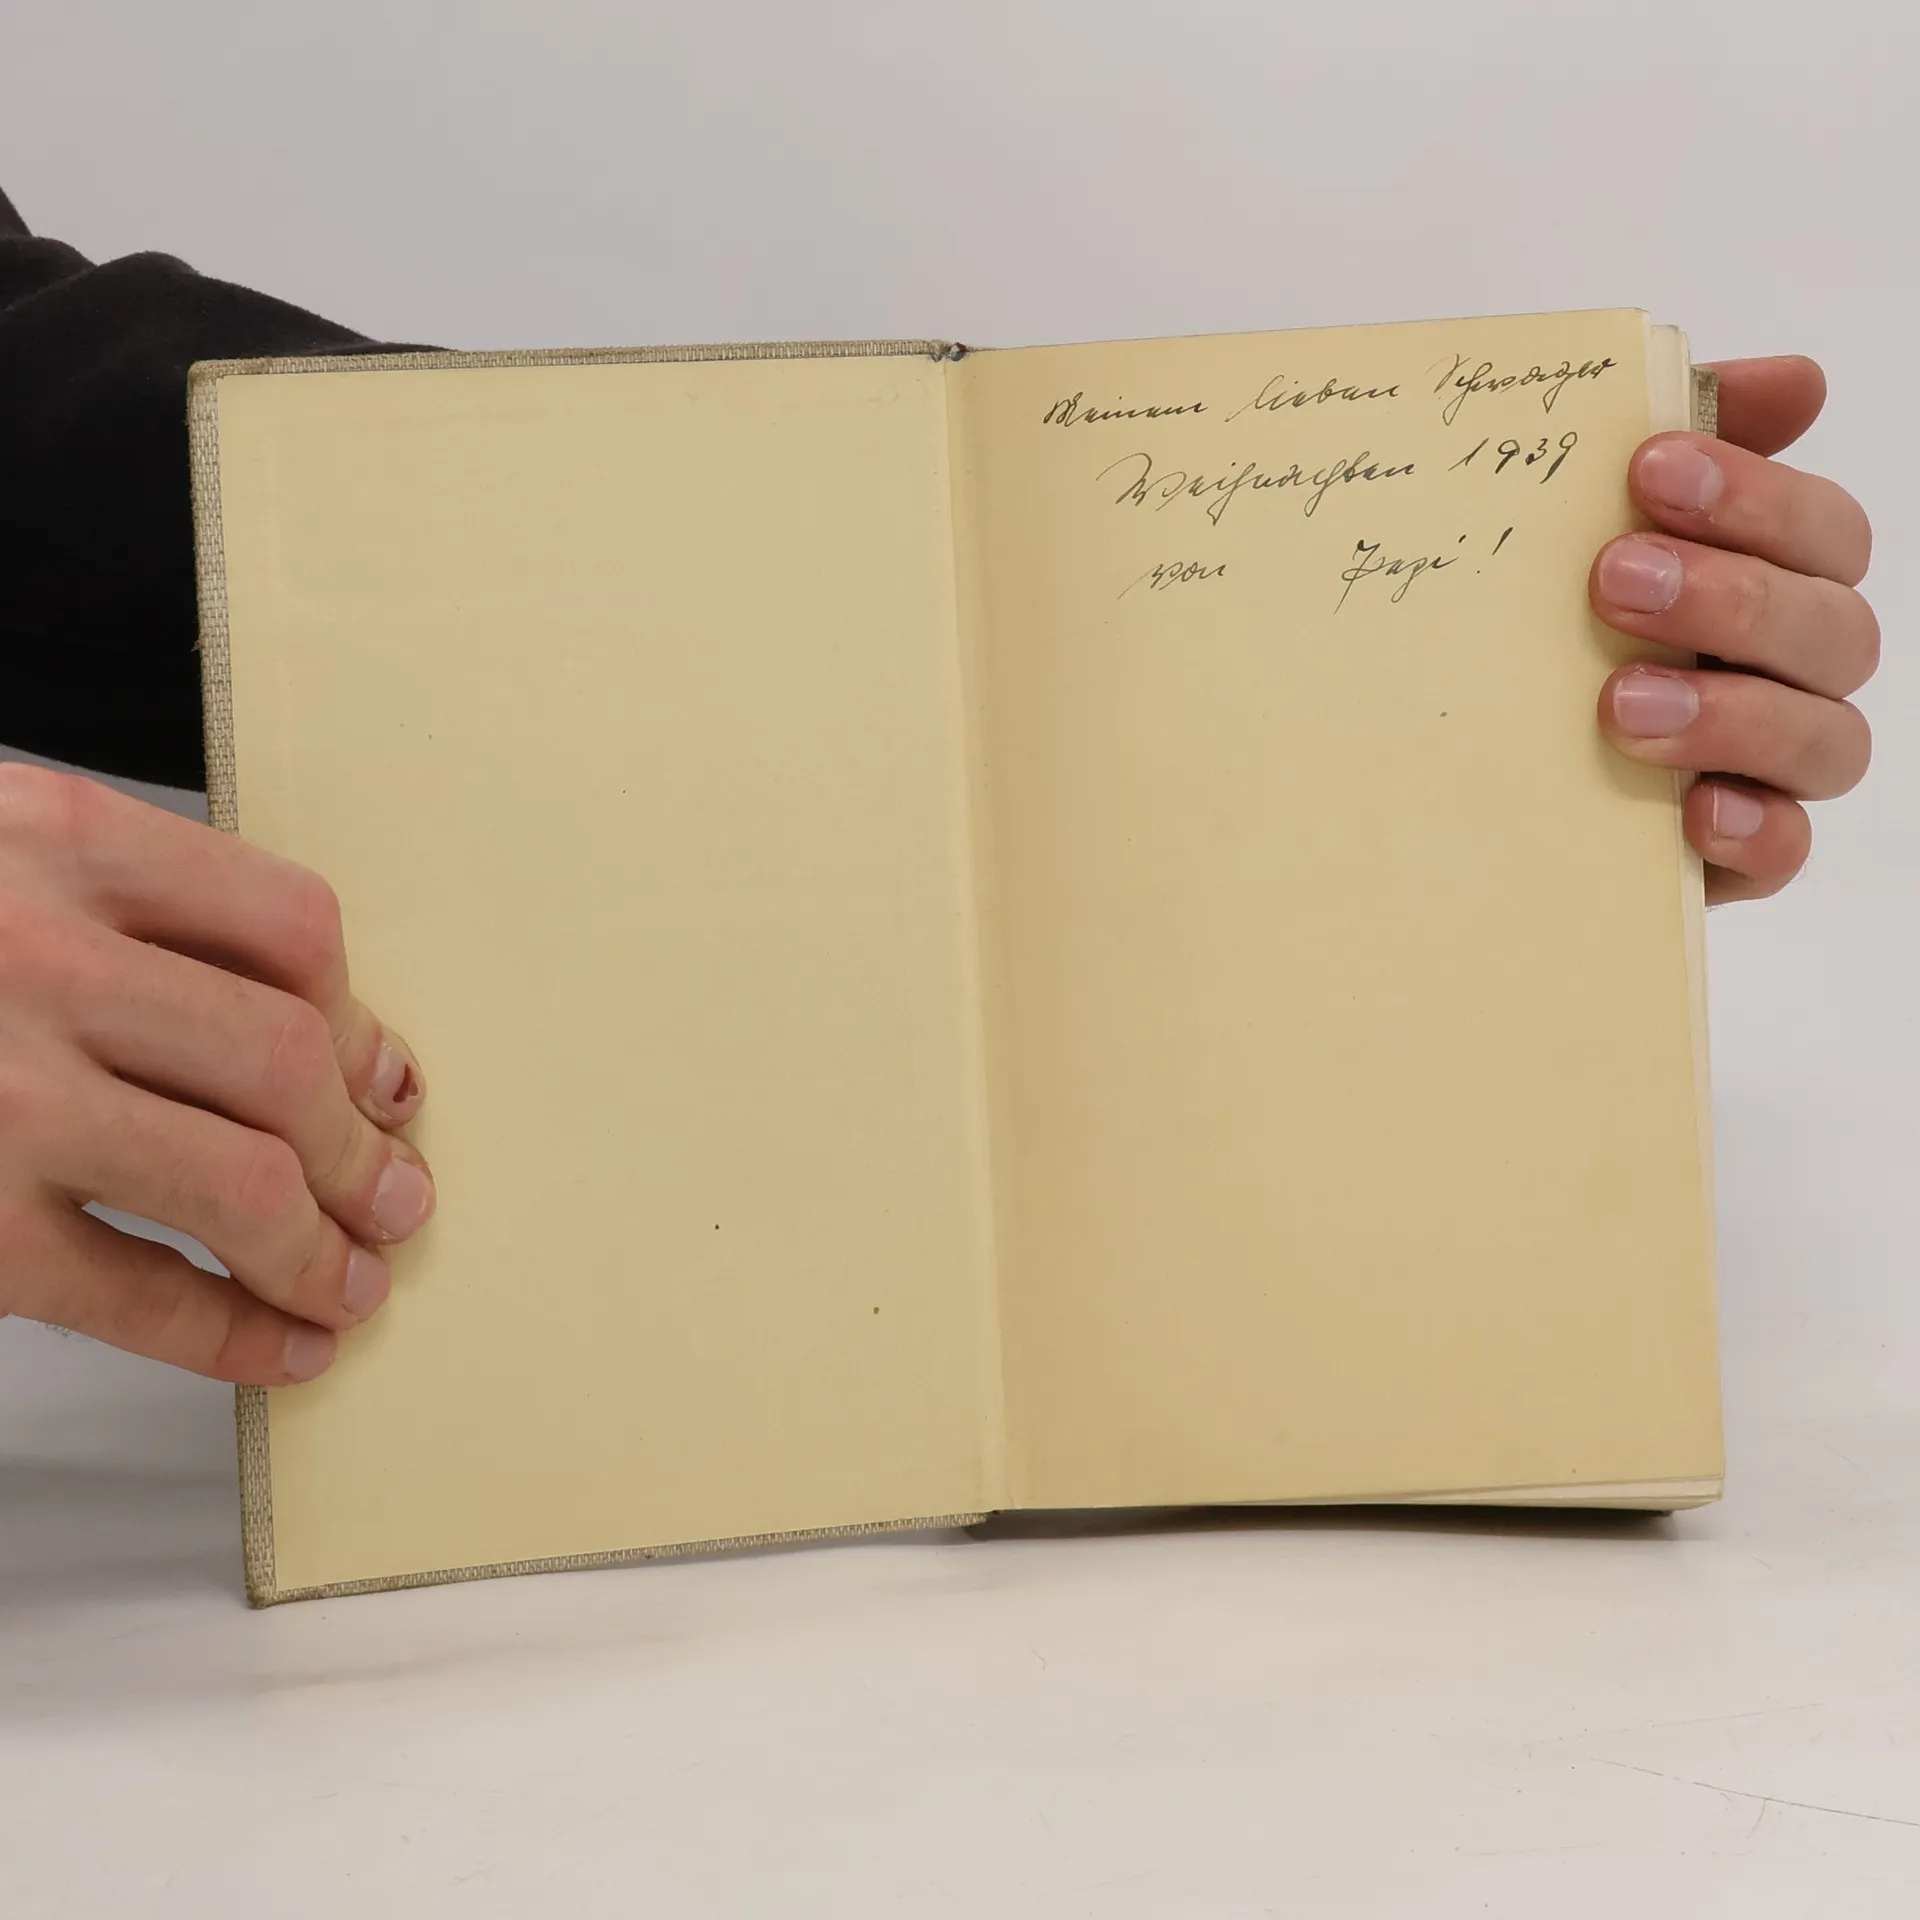 Meinem lieben Schwager
Weihnachten 1939
von !